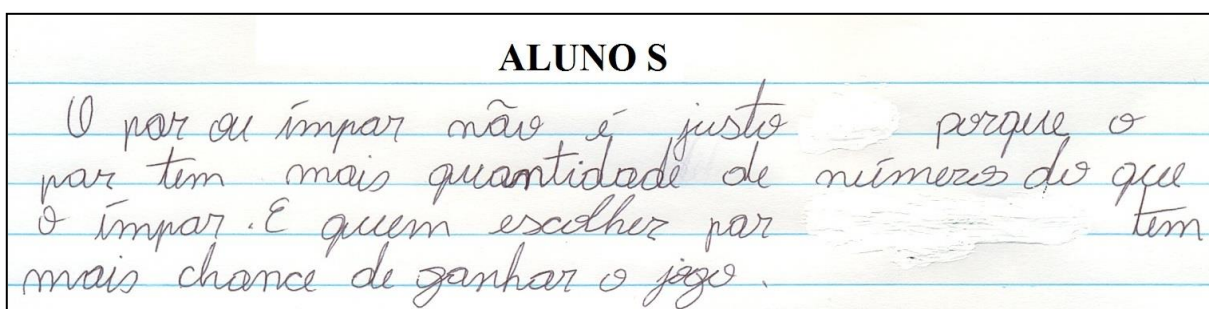 ALUNO S
O par ou ímpar não é justo porque o
par tem mais quantidade de números do que
o ímpar. E quem escolher par tem
mais chance de ganhar o jogo.